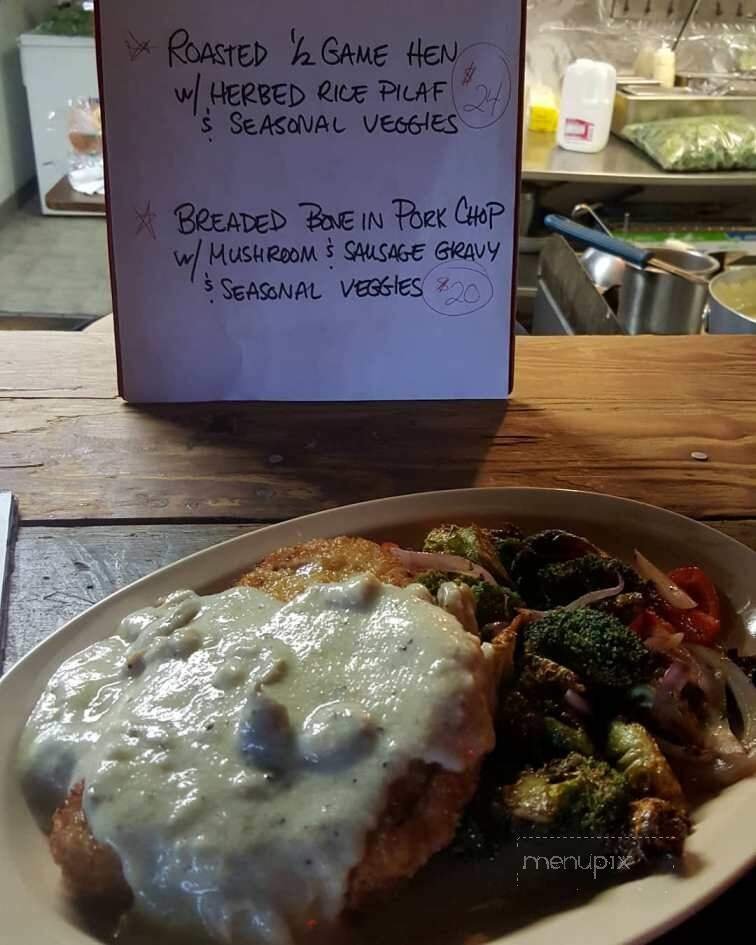 ROASTED 1/2 GAME HEN
w/ HERBED RICE PILAF $24
& SEASONAL VEGGIES
BREADED BONE IN PORK CHOP
w/ MUSHROOM & SAUSAGE GRAVY
& SEASONAL VEGGIES $20
menupix